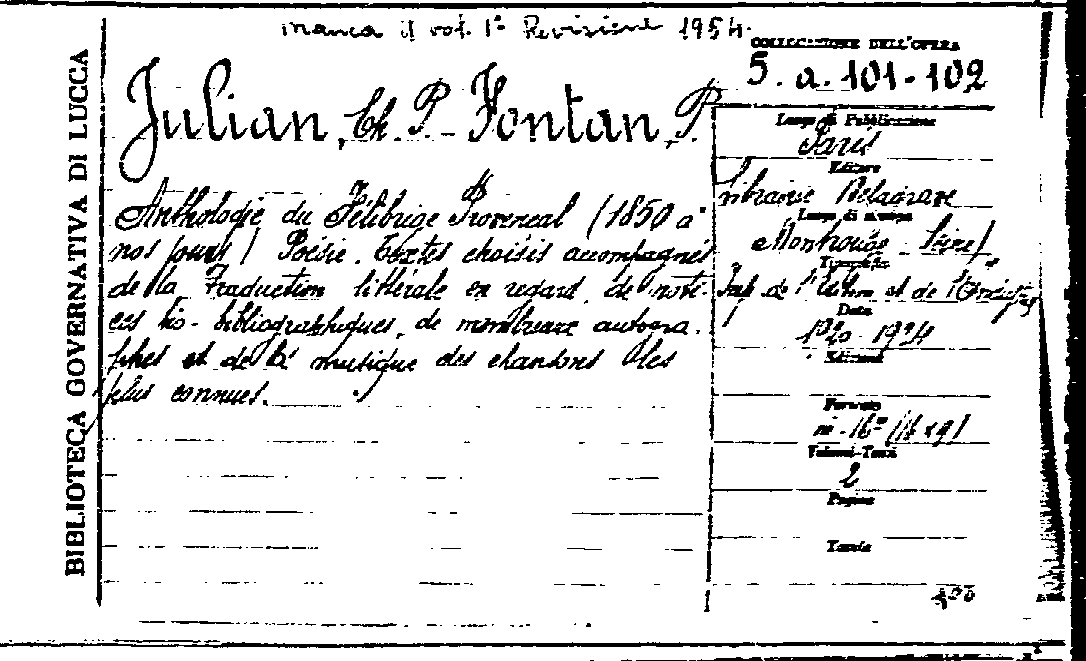 manca il vol. 1º Revisione 1954.
COLLOCAZIONE DELL'OPERA
5. a. 101-102
Julian, Ch. P. - Fontan, P.
BIBLIOTECA GOVERNATIVA DI LUCCA
Anthologie du Félibrige Provençal (1850 à
nos jours) Poésie. Textes choisis accompagnés
de la Traduction littérale en regard, de noti-
ces bio-bibliographiques, de nombreux autogra-
phes et de la musique des chansons les
plus connues.
Luogo di Pubblicazione
Paris
Editore
Librairie Delagrave
Luogo di stampa
Montrouge (Seine)
Tipografia
Imp. de l'Edition et de l'Industrie
Data
1920-1924
Edizione
Formato
in-16º (16x9)
Volumi-Tomi
2
Pagine
Tavole